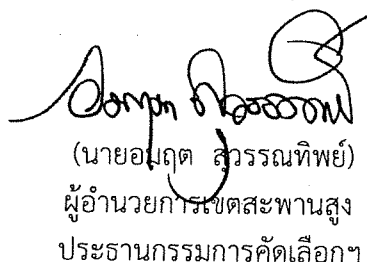 (นายอมฤต สุวรรณทิพย์)
ผู้อำนวยการเขตสะพานสูง
ประธานกรรมการคัดเลือกฯ